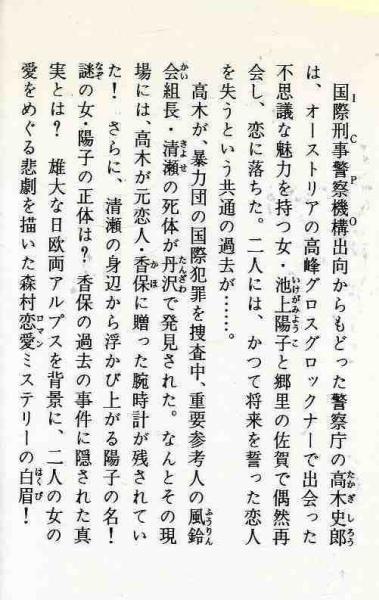 国際刑事警察機構出向からもどった警察庁の高木史郎
は、オーストリアの高峰グロスグロックナーで出会った
不思議な魅力を持つ女・池上陽子と郷里の佐賀で偶然再
会し、恋に落ちた。二人には、かつて将来を誓った恋人
を失うという共通の過去が……。
高木が、暴力団の国際犯罪を捜査中、重要参考人の風鈴
会組長・清瀬の死体が丹沢で発見された。なんとその現
場には、高木が元恋人・香保に贈った腕時計が残されてい
た！　さらに、清瀬の身辺から浮かび上がる陽子の名！
謎の女・陽子の正体は？香保の過去の事件に隠された真
実とは？　雄大な日欧両アルプスを背景に、二人の女の
愛をめぐる悲劇を描いた森村恋愛ミステリーの白眉！